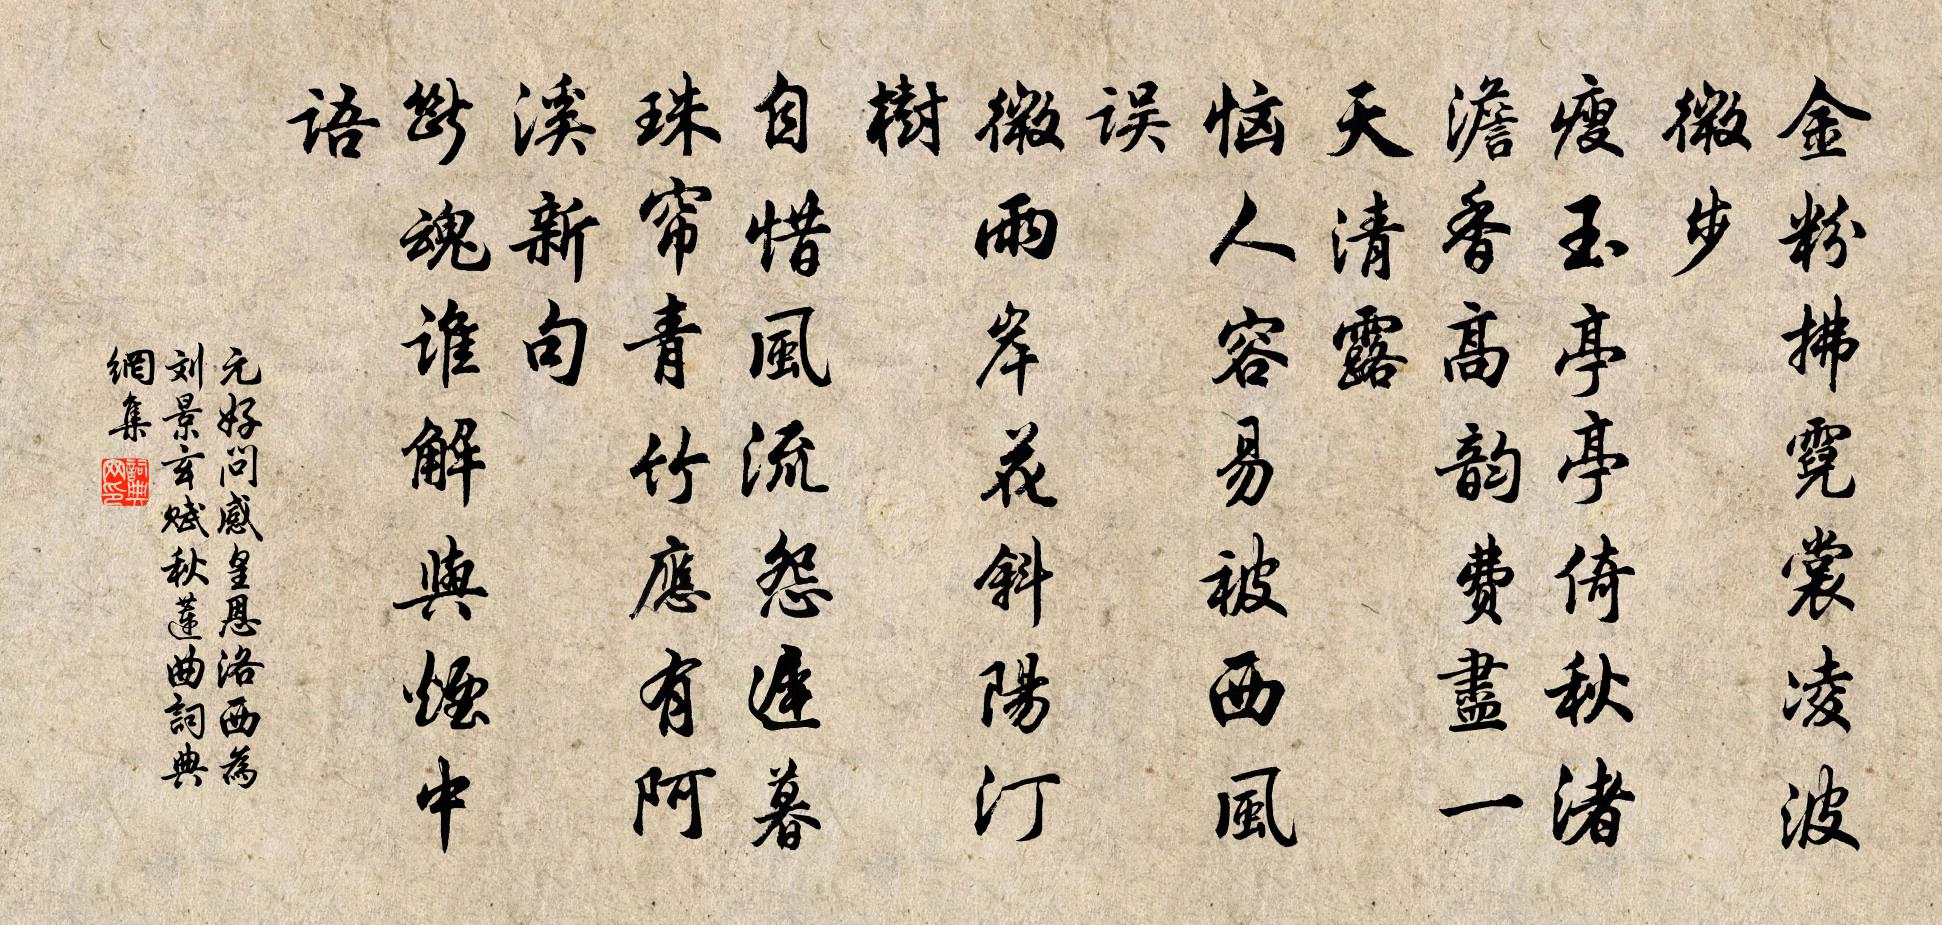 金粉拂霓裳凌波
微步
瘦玉亭亭倚秋渚
澹香高韵費盡一
天清露
恼人容易被西風
误
微雨岸花斜陽汀
樹
自惜風流怨遲暮
珠帘青竹應有阿
溪新句
斷魂谁解與煙中
语
元好问感皇恩洛西為
刘景玄赋秋蓮曲詞典
網集
詞典
网印